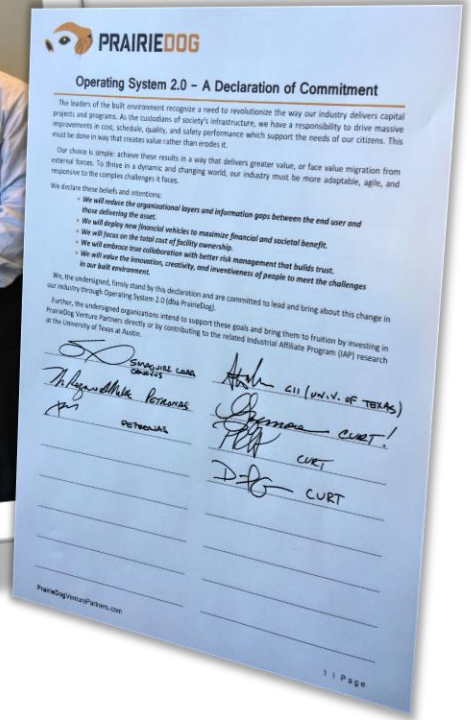 PRAIRIEDOG
Operating System 2.0 – A Declaration of Commitment
The leaders of the built environment recognize a need to revolutionize the way our industry delivers capital
projects and programs. As the custodians of society's infrastructure, we have a responsibility to drive massive
improvements in cost, schedule, quality, and safety performance which support the needs of our citizens. This
must be done in way that creates value rather than erodes it.
Our choice is simple: achieve these results in a way that delivers greater value, or face value migration from
external forces. To thrive in a dynamic and changing world, our industry must be more adaptable, agile, and
responsive to the complex challenges it faces.
We declare these beliefs and intentions:
• We will reduce the organizational layers and information gaps between the end user and
those delivering the asset.
• We will deploy new financial vehicles to maximize financial and societal benefit.
• We will focus on the total cost of facility ownership.
• We will embrace true collaboration with better risk management that builds trust.
• We will value the innovation, creativity, and inventiveness of people to meet the challenges
in our built environment.
We, the undersigned, firmly stand by this declaration and are committed to lead and bring about this change in
our industry through Operating System 2.0 (dba PrairieDog).
Further, the undersigned organizations intend to support these goals and bring them to fruition by investing in
PrairieDog Venture Partners directly or by contributing to the related Industrial Affiliate Program (IAP) research
at the University of Texas at Austin.
CII (UNIV. OF TEXAS)
PETRONAS
CURT!
PETRONAS
CURT
CURT
PrairieDogVenturePartners.com
1 | Page